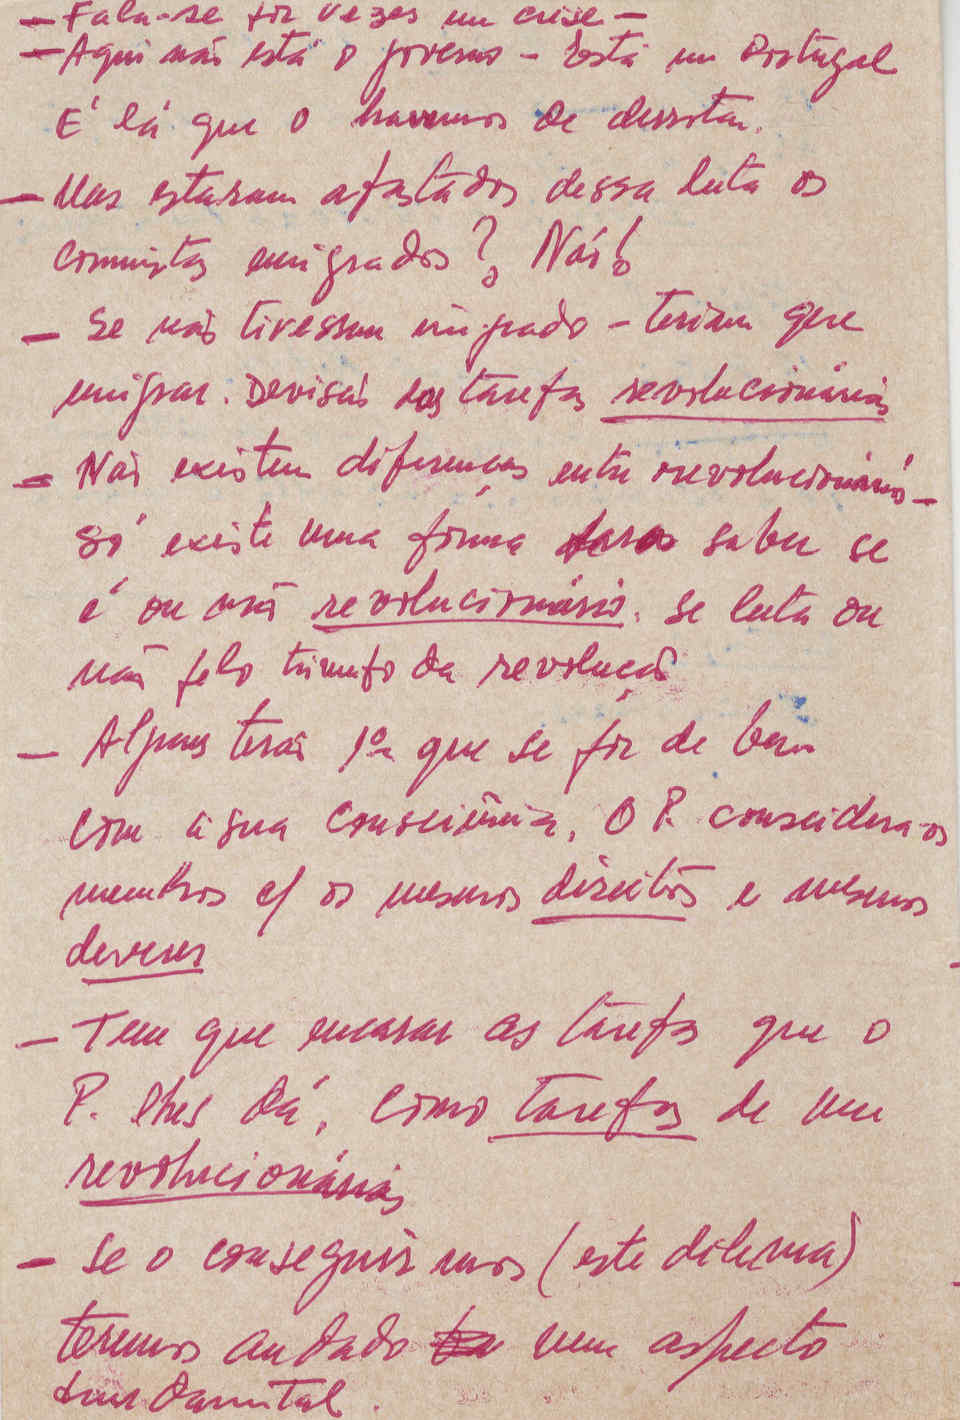 — Fala-se por vezes em crise —
— Aqui não está o governo – Está em Portugal
É lá que o havemos de derrotar.
— Mas estaram afastados dessa luta os
comunistas emigrados? Não!
— Se não tivessem emigrado – teriam que
emigrar. Devisão das tarefas revolucionárias
— Não existem diferenças entre revolucionários –
só existe uma forma para saber se
é ou não revolucionário. Se luta ou
não pelo triunfo da revolução
— Alguns terão que se pôr de bem
com a sua consciência. O P. considera-os
membros c/ os mesmos direitos e mesmos
deveres
— Tem que encarar as tarefas que o
P. lhes dá, como tarefas de um
revolucionários
— Se o conseguirmos (este dilema)
teremos andado num aspecto
fundamental.